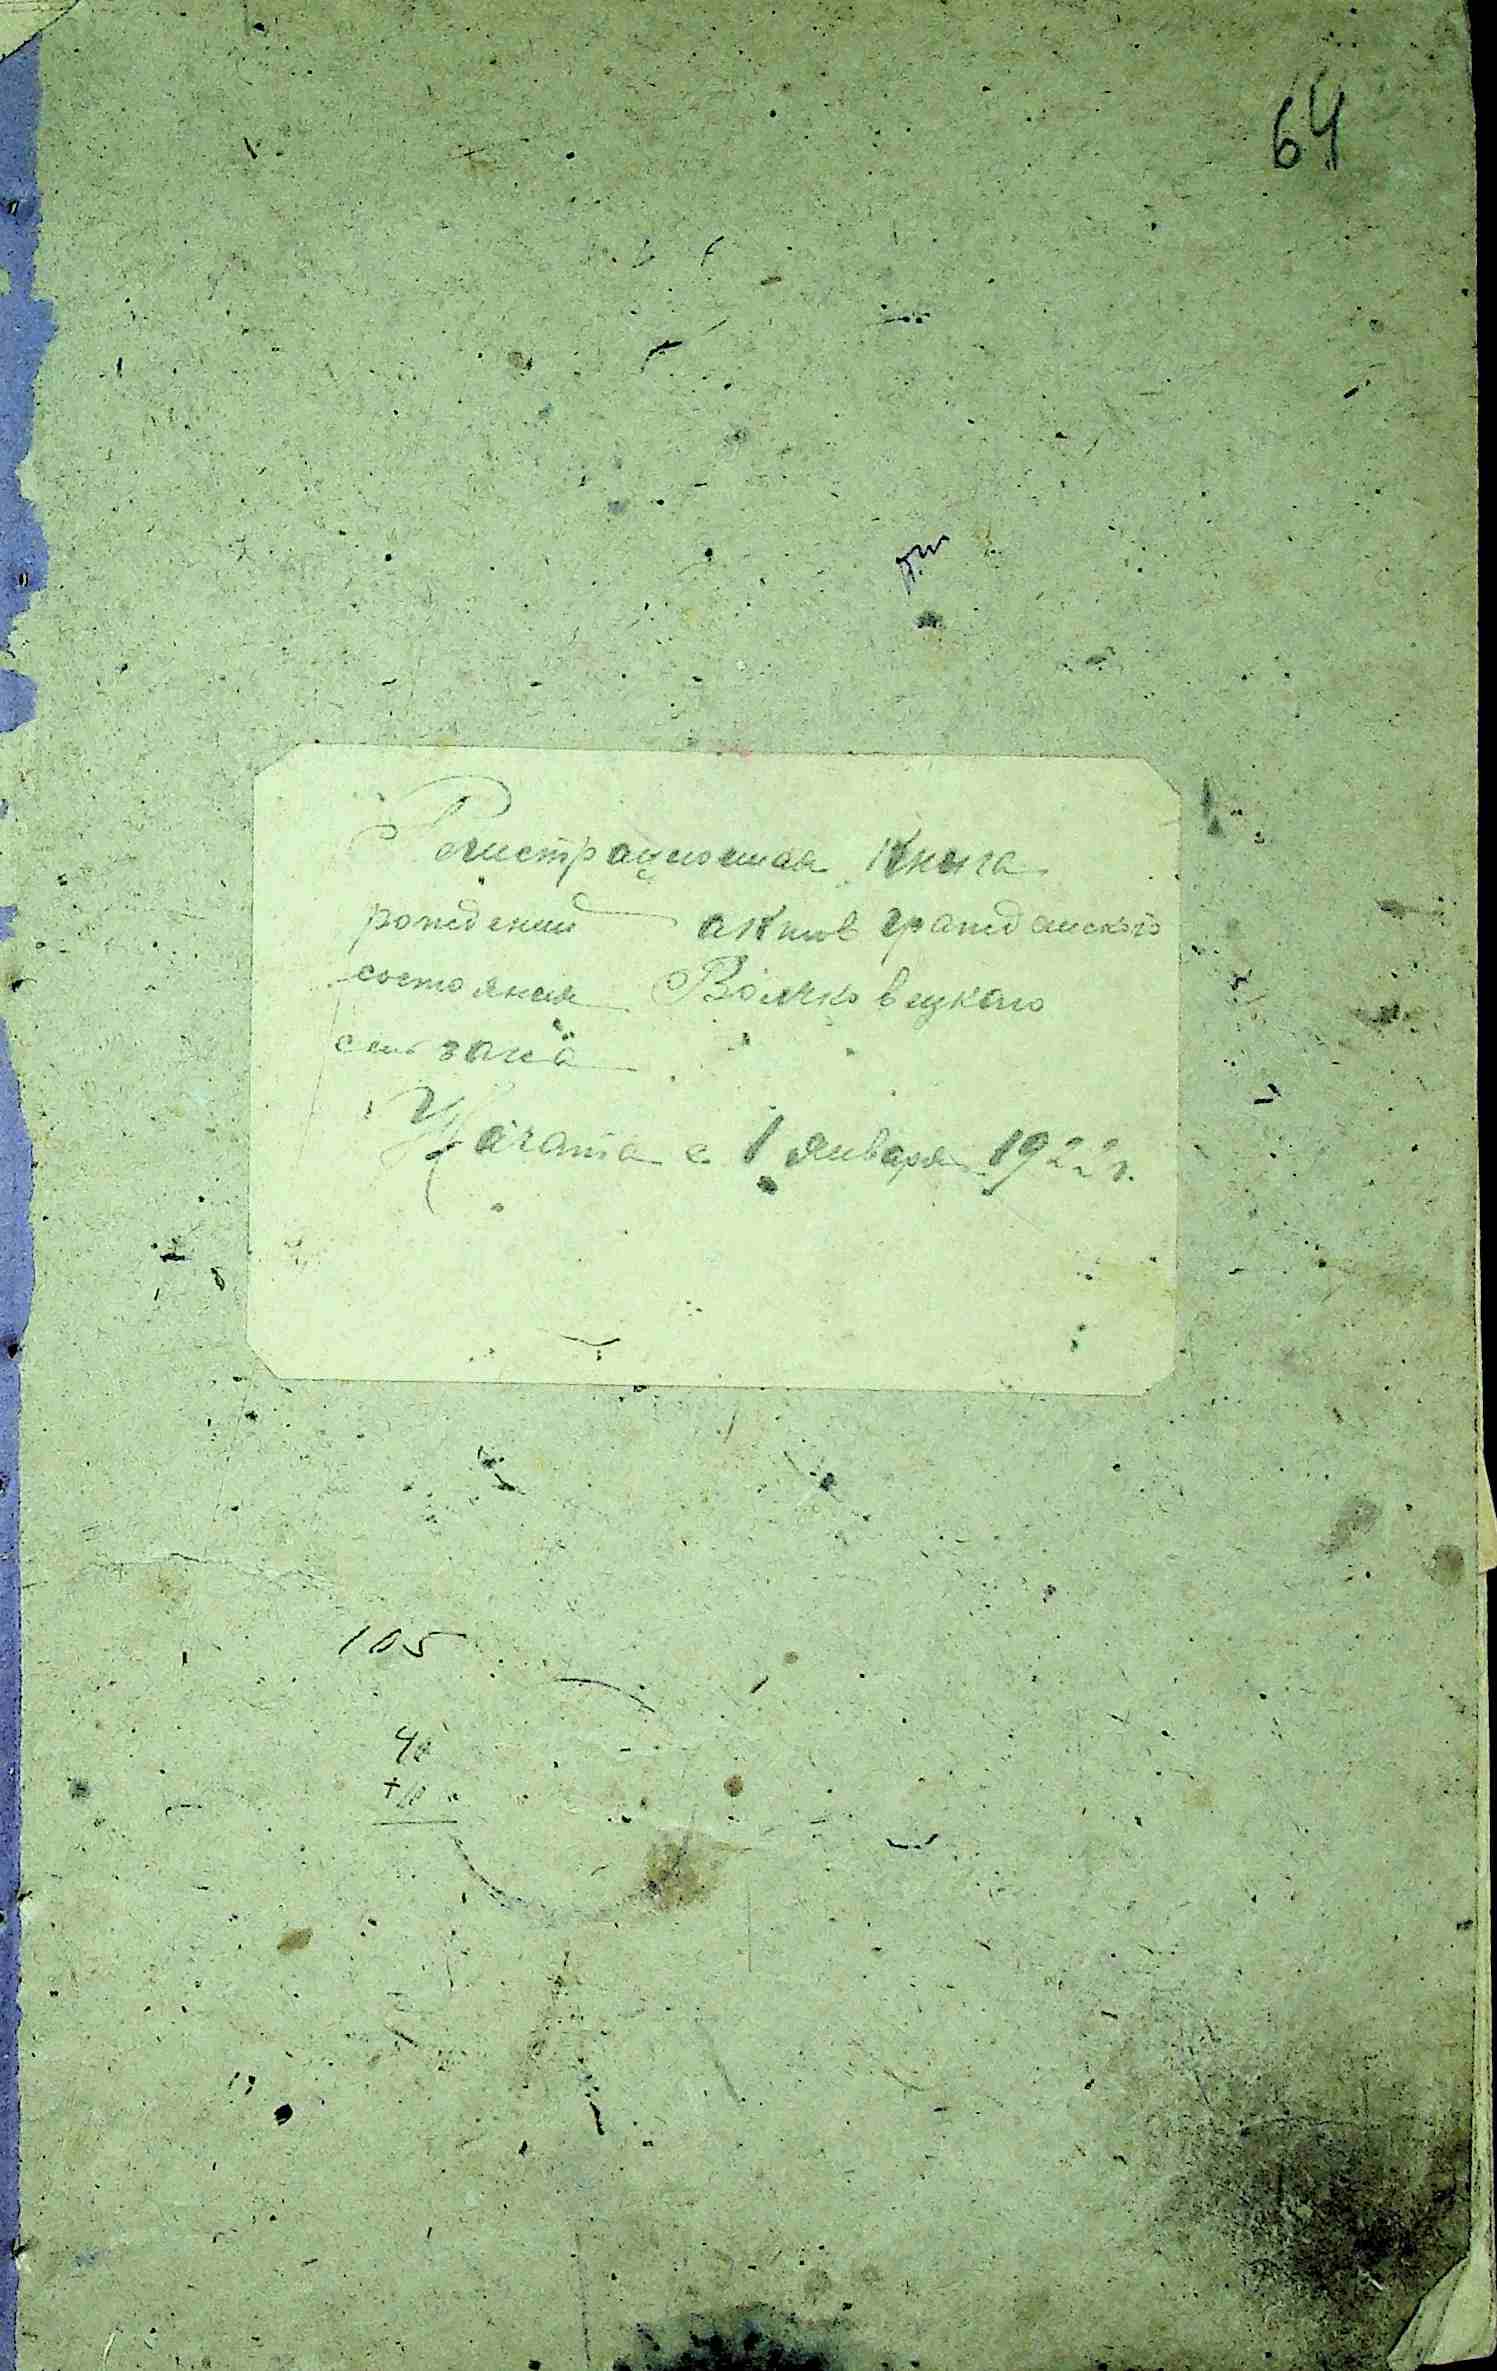 64
Регистрационная Книга
рождений актов гражданского
состояния Волчковецкого
сель загса
Начата с 1 января 1922 г.
105